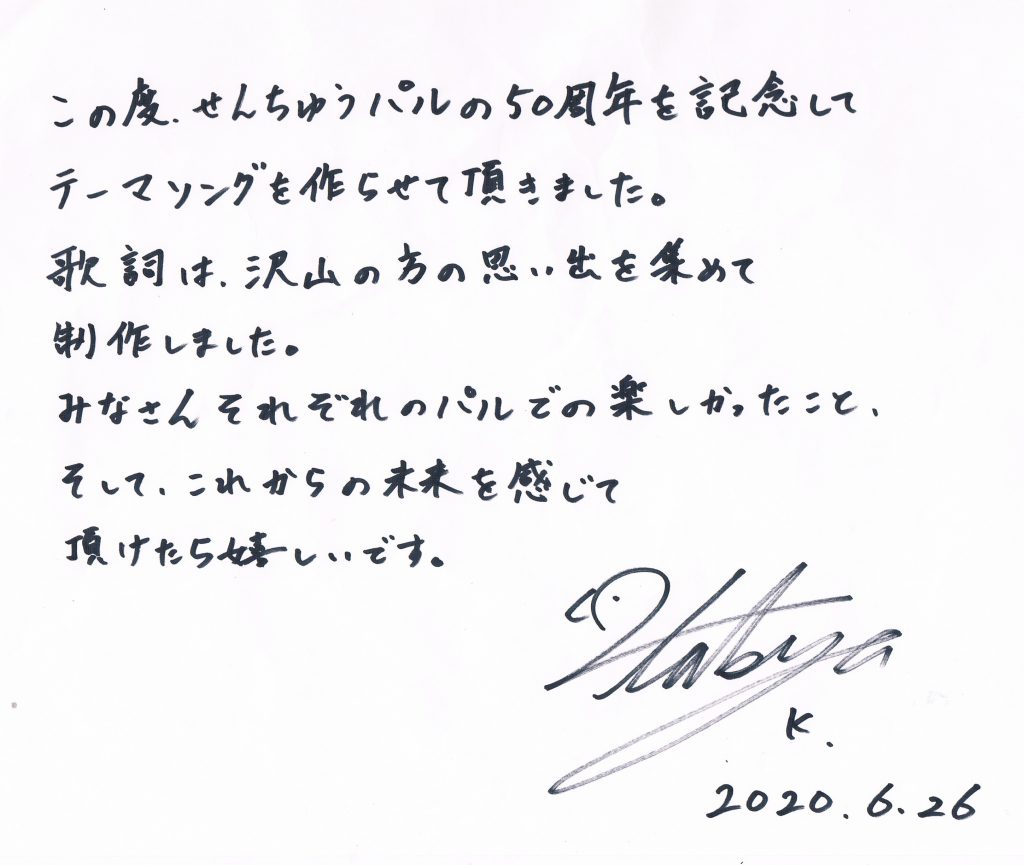 この度、せんちゅうパルの50周年を記念して
テーマソングを作らせて頂きました。
歌詞は、沢山の方の思い出を集めて
制作しました。
みなさんそれぞれのパルでの楽しかったこと、
そして、これからの未来を感じて
頂けたら嬉しいです。
K.
2020.6.26